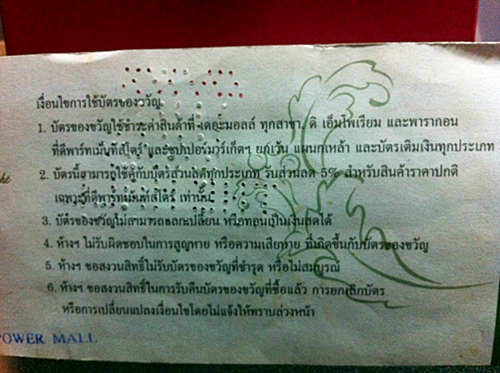 เงื่อนไขการใช้บัตรของขวัญ
1. บัตรของขวัญใช้ชำระค่าสินค้าที่ เดอะมอลล์ ทุกสาขา ดิ เอ็มโพเรียม และพารากอน
ที่ดีพาร์ทเม็นท์สโตร์ และซุปเปอร์มาร์เก็ตฯ ยกเว้น แผนกเหล้า และบัตรเติมเงินทุกประเภท
2. บัตรนี้สามารถใช้คู่กับบัตรส่วนลดทุกประเภท รับส่วนลด 5% สำหรับสินค้าราคาปกติ
เฉพาะที่ดีพาร์ทเม้นท์สโตร์ เท่านั้น
3. บัตรของขวัญไม่สามารถแลกเปลี่ยน หรือทอนเป็นเงินสดได้
4. ห้างฯ ไม่รับผิดชอบในการสูญหาย หรือความเสียหาย ที่เกิดขึ้นกับบัตรของขวัญ
5. ห้างฯ ขอสงวนสิทธิ์ไม่รับบัตรของขวัญที่ชำรุด หรือไม่สมบูรณ์
6. ห้างฯ ขอสงวนสิทธิ์ในการรับคืนบัตรของขวัญที่ซื้อแล้ว การยกเลิกบัตร
หรือการเปลี่ยนแปลงเงื่อนไขโดยไม่แจ้งให้ทราบล่วงหน้า
POWER MALL